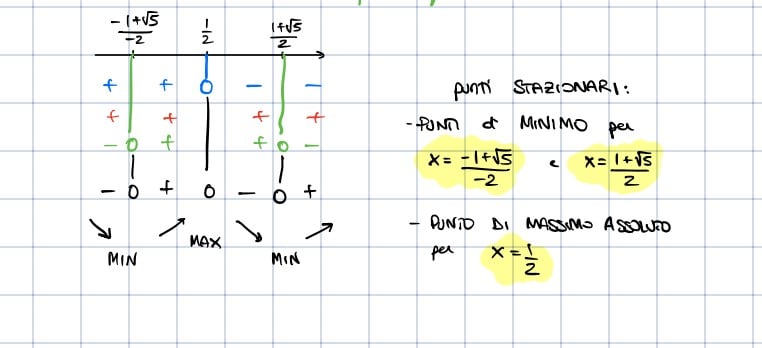 -1+√5/-2 1/2 1+√5/2
+ + 0 - -
+ + + +
- 0 + + 0 -
- 0 + 0 - 0 +
↘ ↗ ↘ ↗
MIN MAX MIN
PUNTI STAZIONARI:
- PUNTI di MINIMO per
x = -1+√5/-2 e x = 1+√5/2
- PUNTO DI MASSIMO ASSOLUTO
per x = 1/2